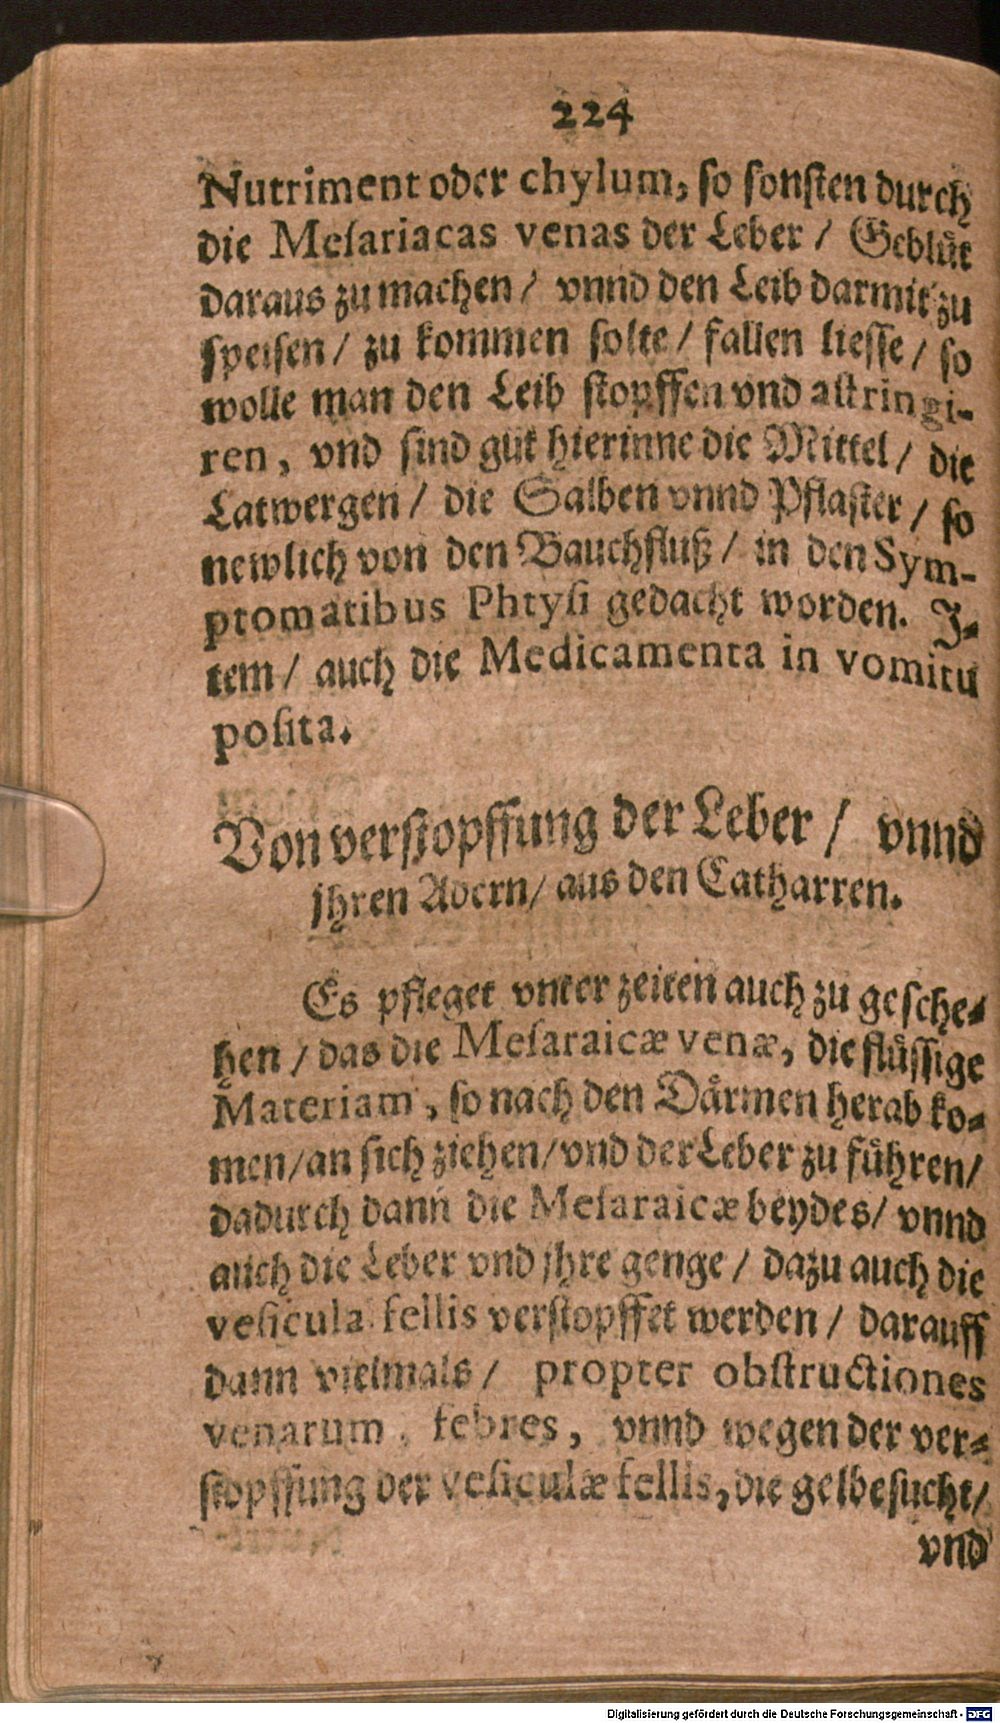 224
Nutriment oder chylum, so sonsten durch
die Meſariacas venas der Leber / Geblüt
daraus zu machen / vnnd den Leib darmit zu
speisen / zu kommen solte / fallen liesse / so
wolle man den Leib stopffen vnd aſtringi-
ren, vnd sind gut hierinne die Mittel / die
Latwergen / die Salben vnnd Pflaster / so
newlich von den Bauchfluß / in den Sym-
ptomatibus Phtyſi gedacht worden. J-
tem / auch die Medicamenta in vomitu
poſita.
Von verstopffung der Leber / vnnd
jhren Adern / aus den Catharren.
Es pfleget vnter zeiten auch zu gesche-
hen / das die Meſaraicæ venæ, die flüssige
Materiam, so nach den Därmen herab ko-
men / an sich ziehen / vnd der Leber zu führen /
dadurch dann die Meſaraicæ beydes / vnnd
auch die Leber vnd jhre genge / dazu auch die
veſicula fellis verstopffet werden / darauff
dann vielmals / propter obſtructiones
venarum, febres, vnnd wegen der ver-
stopffung der veſiculæ fellis, die gelbesucht /
vnd
Digitalisierung gefördert durch die Deutsche Forschungsgemeinschaft - DFG